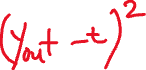 (Yout - t)²